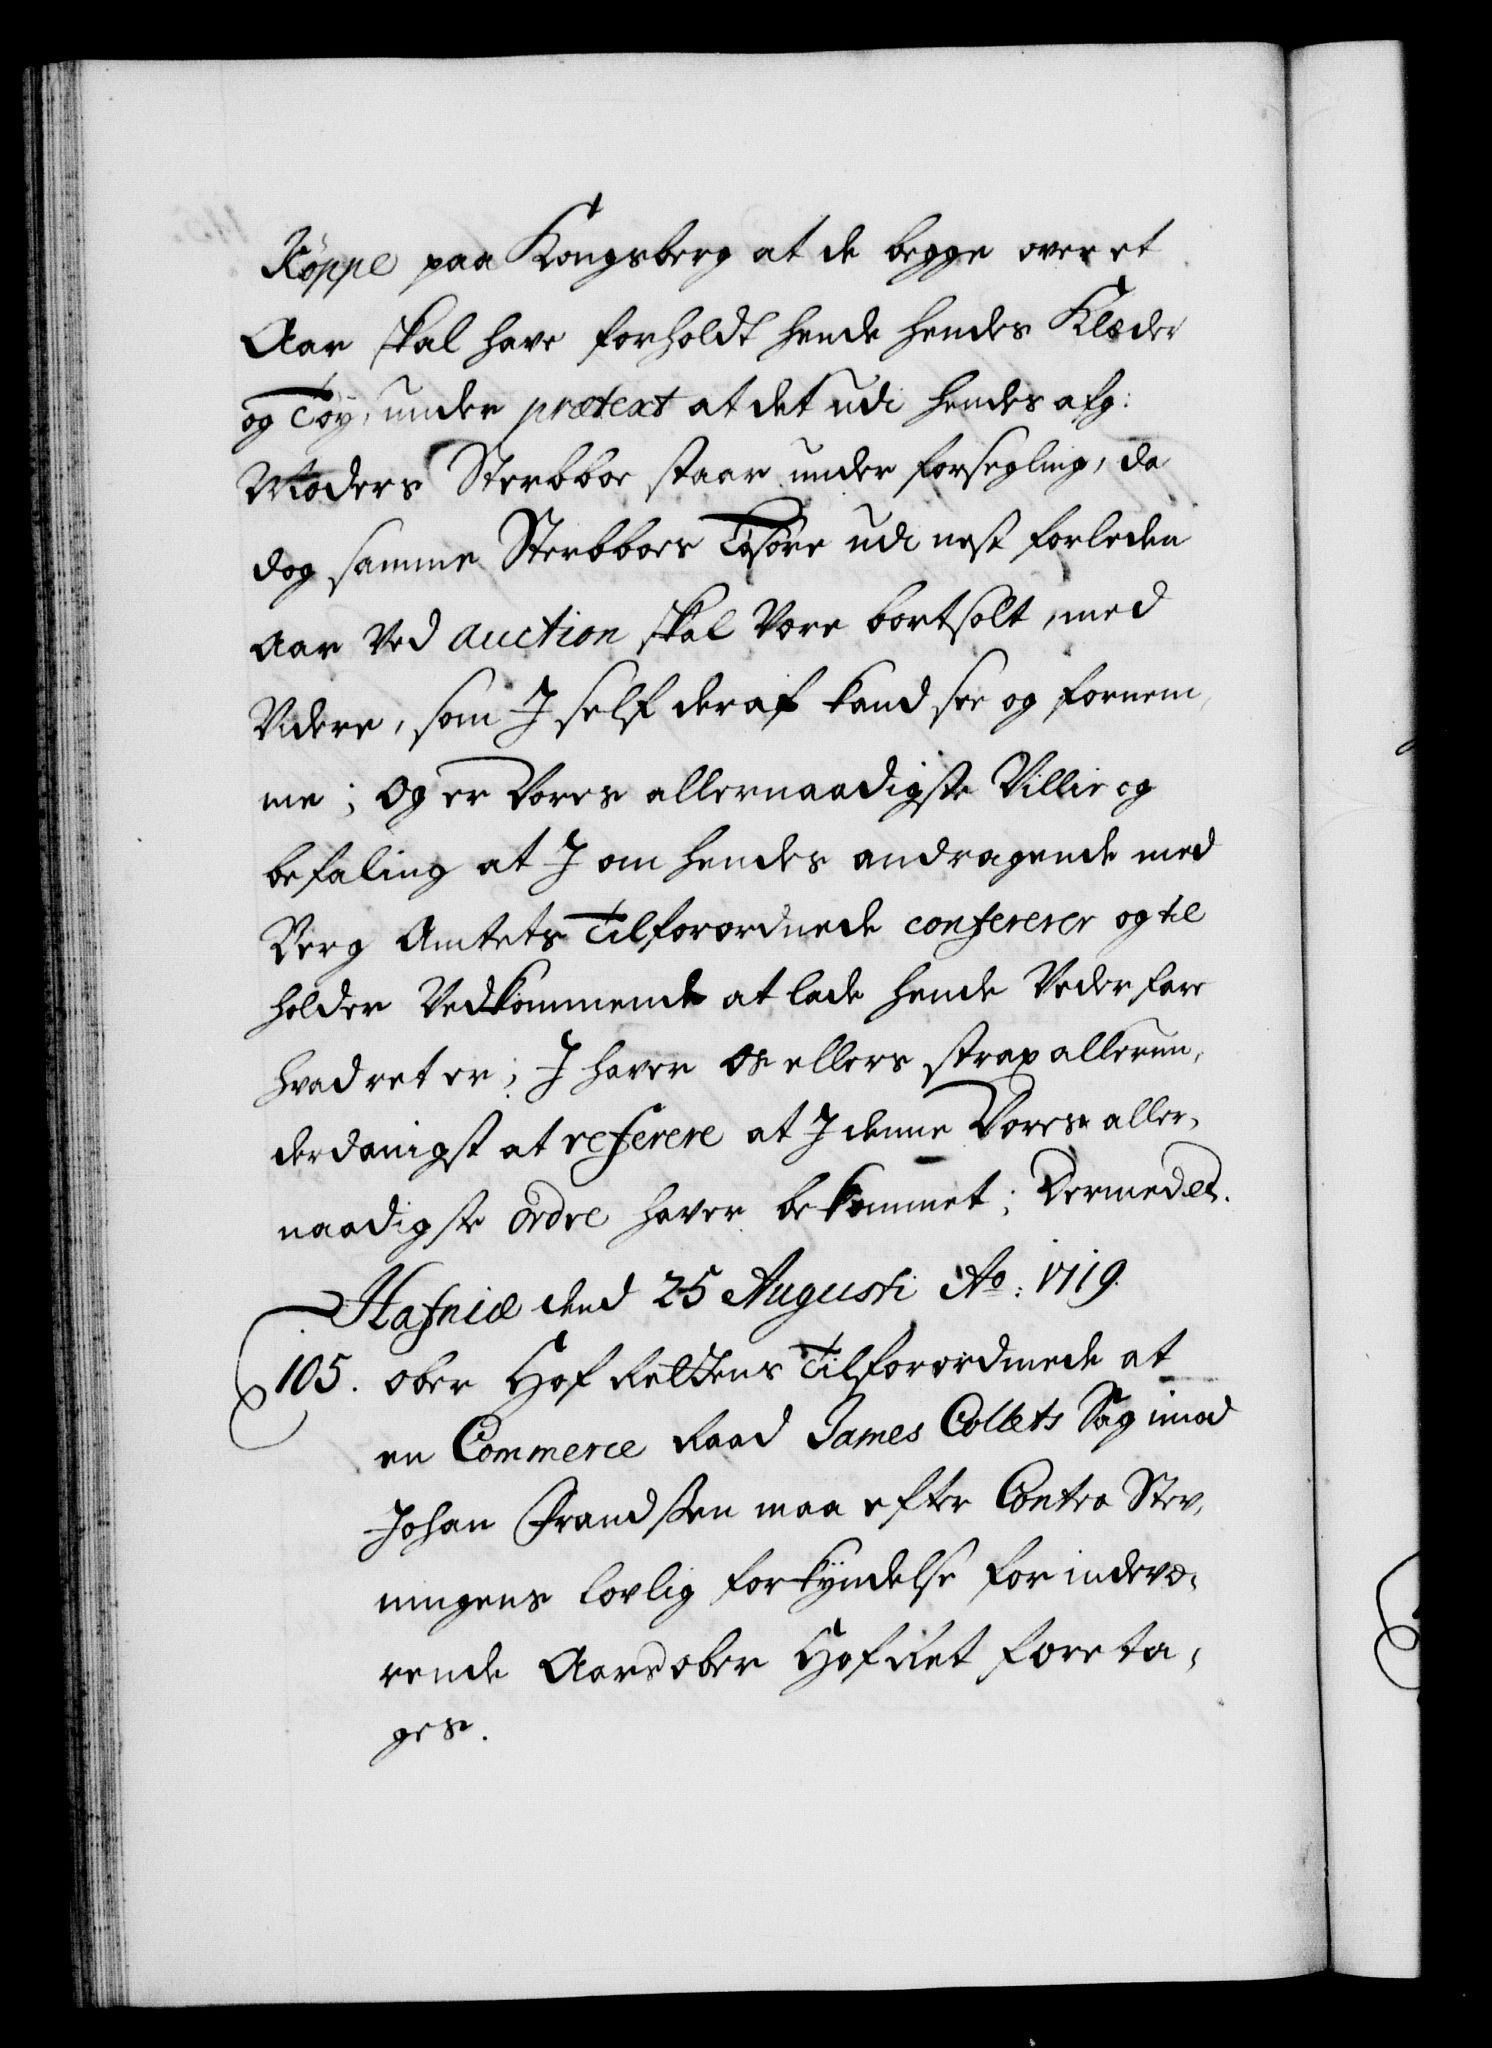 Köppe paa Kongsberg at de begge over et
Aar skal have forholdt hende hendes Klæder
og Töy, under prætext at det udi hendes afg:
Moders Sterbboe staar under forsegling, da
dog samme Sterbboes Løsöre udi nest forleden
Aar ved auction skal være bortsolt, med
Videre, som I self deraf kand see og fornem,
me; Og er Vores allernaadigste Villie og
befaling at I om hendes andragende med
Berg Amtets Tilforordnede confererer og til
holder Vedkommende at lade hende Vederfare
hvad ret er; I haver Os ellers strax allerun,
derdanigst at referere at I denne Vores aller,
naadigste ordre haver bekommet; Dermed etc.
Hafniæ dend 25 Augusti Ao: 1719.
105. Ober Hof Rettens Tilforordnede at
en Commerce Raad James Collets Sag imod
Johan Frandssen maa efter Contra Stev,
ningens lovlig forkyndelse for indevæ,
rende Aars ober Hof Ret foreta,
ges.